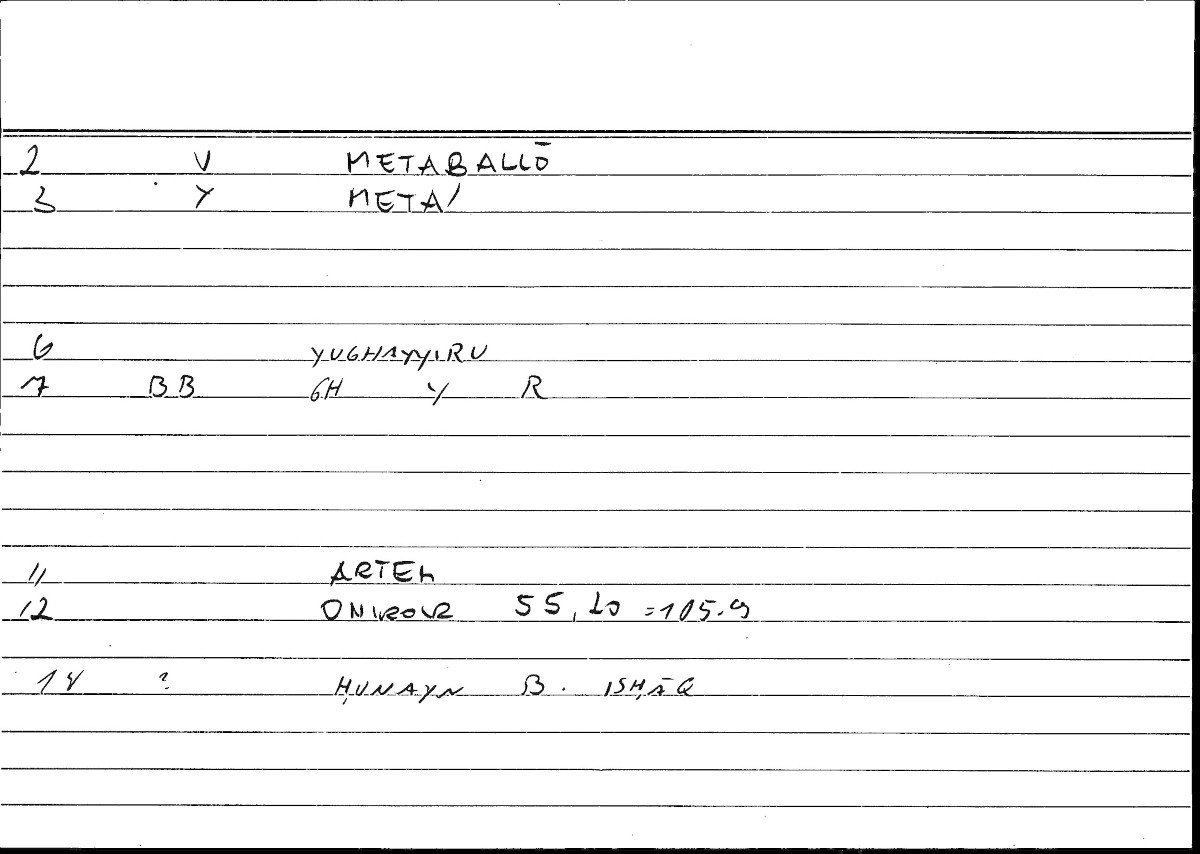 2 V METABALLŌ
3 Y META/
6 YUGHAYYIRU
7 BB GH Y R
11 ARTEM
12 ONIROCR 55, 20 = 105.9
14 ? ḤUNAYN B. ISḤĀQ